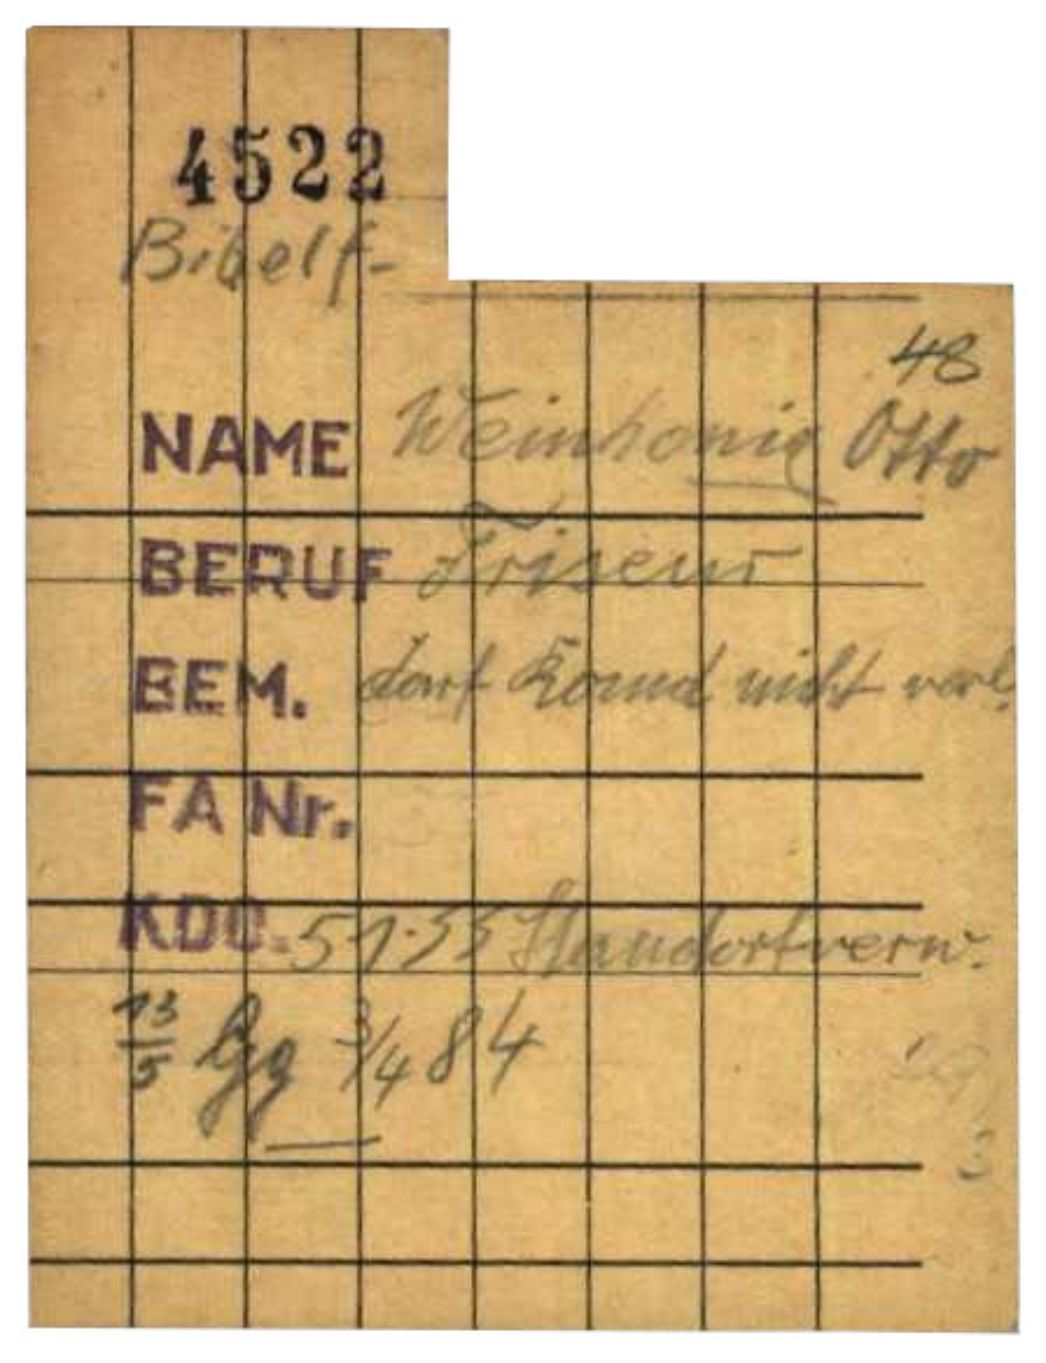 4522
Bibelf-
48
NAME Weinhonig Otto
BERUF Friseur
BEM. darf Komd nicht verl.
FA Nr.
KDO. 51.33 Standortverw.
13/5 3/4 84
3